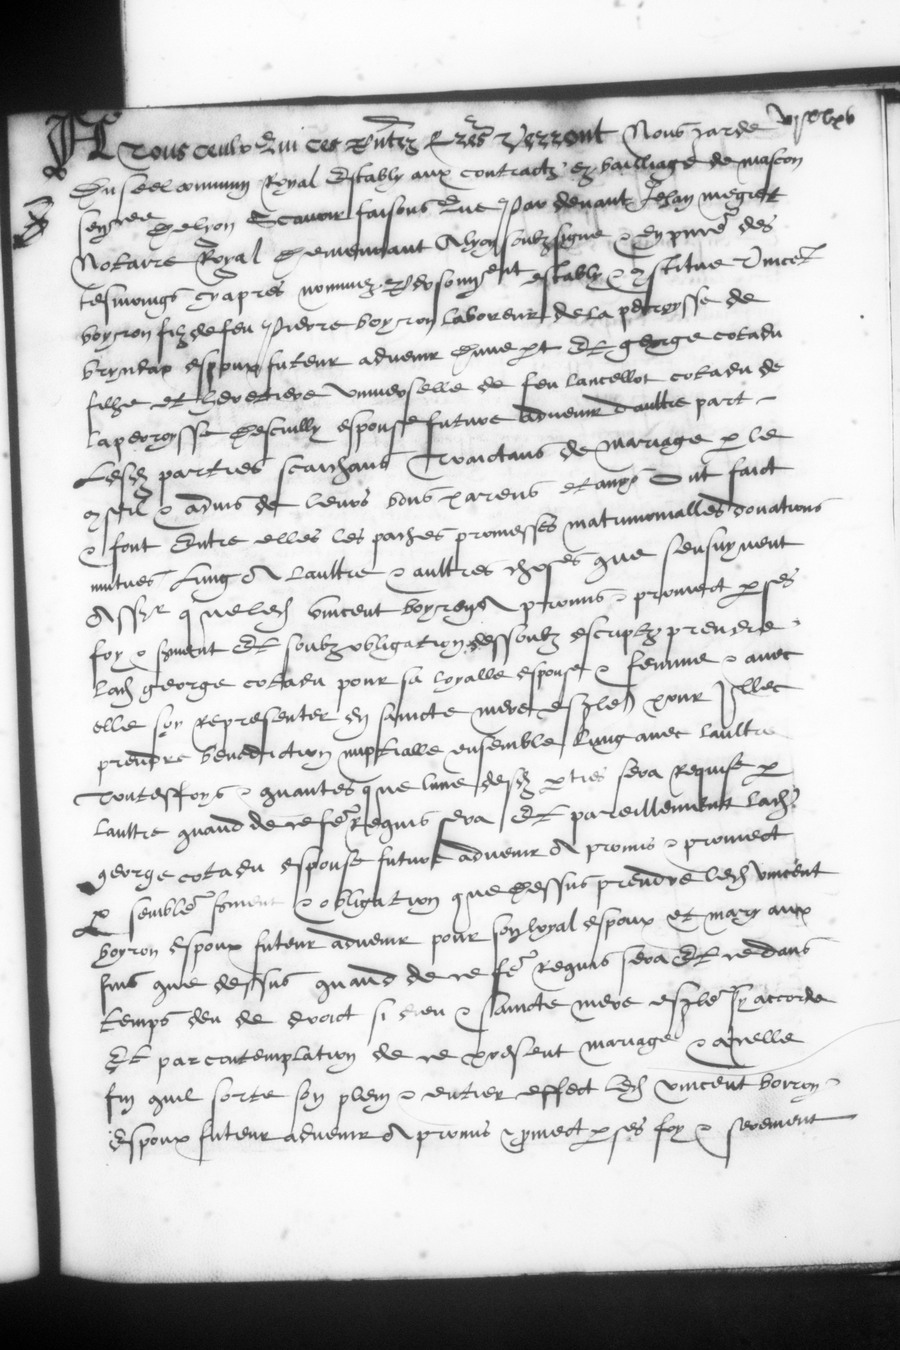 A tous ceulx qui ces pntes lres verront Nous garde
du seel commun Royal estably aux contractz ez bailliage de mascon
senes de lyon scavoir faisons que par devant Jehan megret
Notaire Royal demeurant a lyon soubzsigne & en pnce des
tesmoings cy apres nommez psonnellement estably & constitue vincet
boyron filz de feu pierre boyron laboreur de la perroysse de
bryndas espoux futeur advenir d'une pt Et george cotadu
filhe et heretiere universelle de feu lancellot cotadu de
la perroysse d'escully espouse future advenir d'aultre part
Lesd parties saichans traictans de mariage p le
conseil & advis de leurs bons parens et amys Ont faict
& font entre elles les paches promesses matrimonialles donations
mutues lung a laultre & aultres choses que sensuyvent
Assr que led vincent boyron a promis & promect p ses
foy & serment Et soubz obligation dessoubz escriptz prendre
lad george cotadu pour sa loyalle espouse & femme & avec
elle soy representer en saincte mere esgle pour illec
prendre benediction nuptialle ensemble lung avec laultre
toutesfoys & quantes que lune desd pties sera requise p
laultre quand de ce fe requis sera Et pareillement lad
george cotadu espouse future advenir a promis & promect
p semble serment & obligation que dessus prendre led vincent
boyron espoux futeur advenir pour son loyal espoux et mary aux
fins que dessus quand de ce fe requis sera Et ce dans
temps deu de droict si dieu & saincte mere esgle sy accorde
Et par contemplation de ce present mariage & a celle
fin quil sorte son plein & entier effect led vincent boyron
espoux futeur advenir a promis & pmect p ses foy & serement